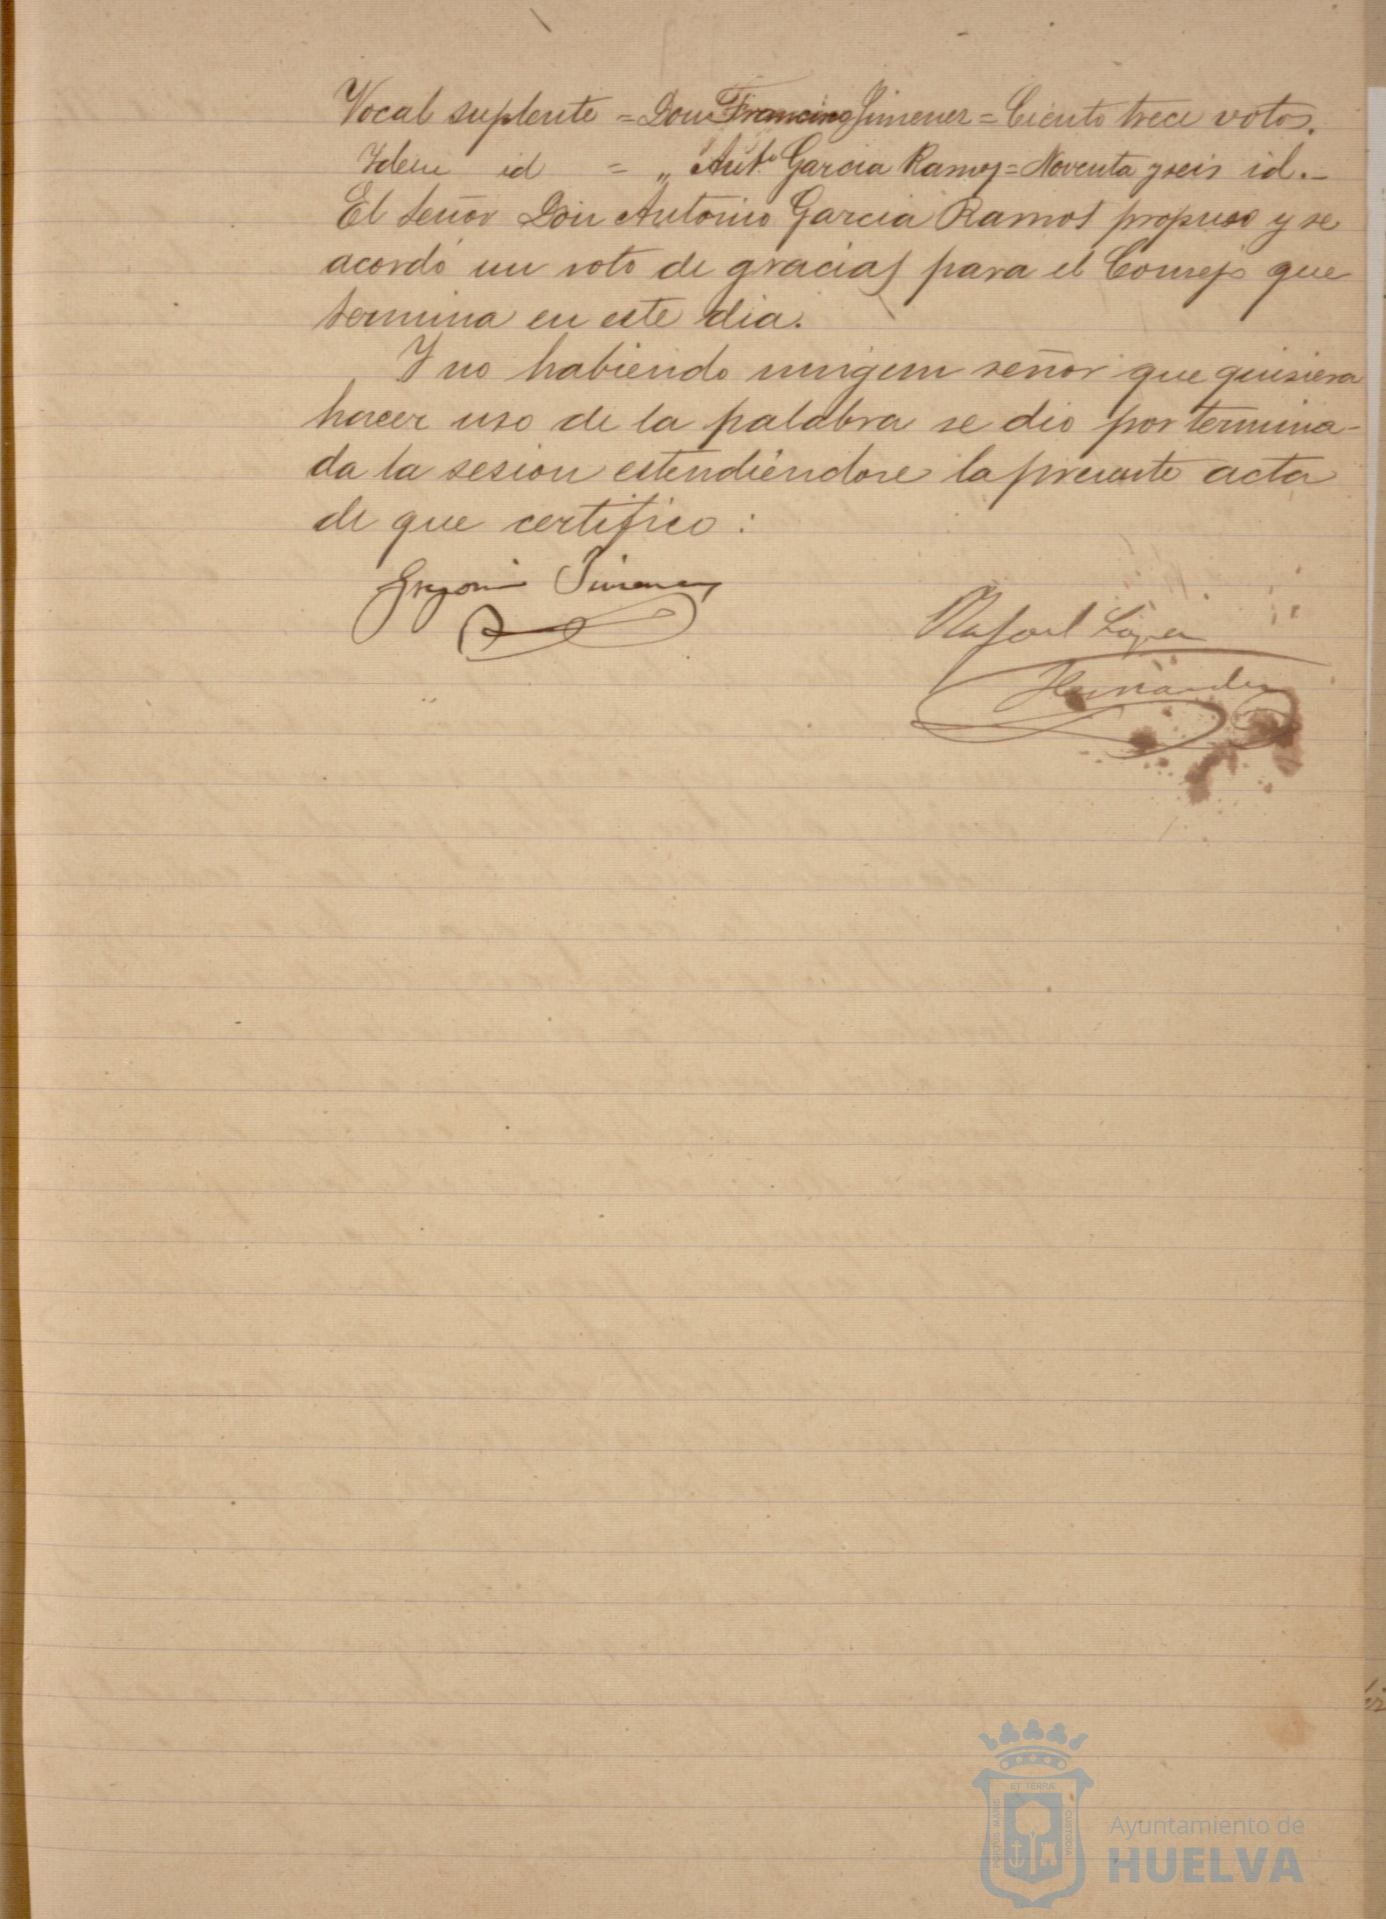 Vocal suplente = Don Francisco Jimenez = Ciento trece votos.
Idem id = „ Antº Garcia Ramos = Noventa y seis id.–
El Señor Don Antonio Garcia Ramos propuso y se
acordó un voto de gracias para el Consejo que
termina en este dia.
Y no habiendo ningun señor que quisiera
hacer uso de la palabra se dio por termina-
da la sesion estendiéndose la presente acta
de que certifico:
Gregorio Jimenez
Rafael López
Hernandez
ET TERRA
PORTUS MARIS
CUSTODIA
Ayuntamiento de
HUELVA